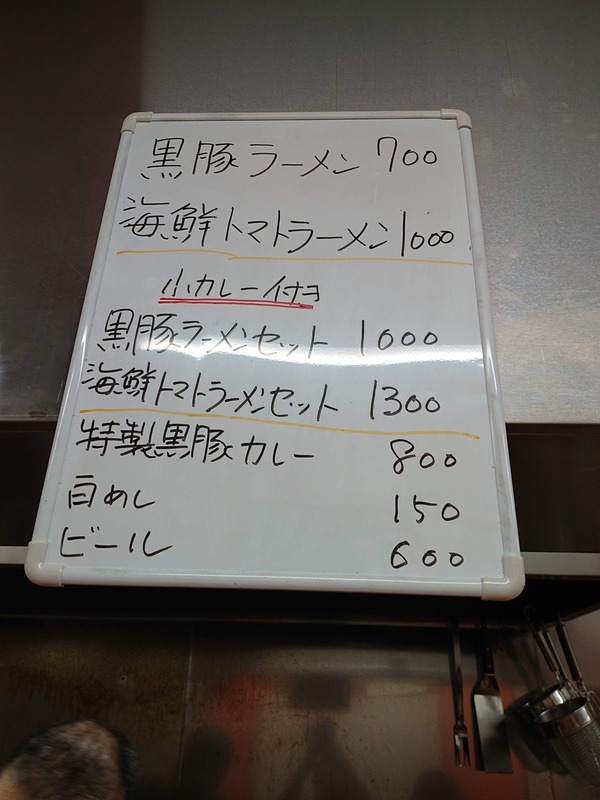 黒豚ラーメン 700
海鮮トマトラーメン 1000
小カレー付ヨ
黒豚ラーメンセット 1000
海鮮トマトラーメンセット 1300
特製黒豚カレー 800
白めし 150
ビール 600